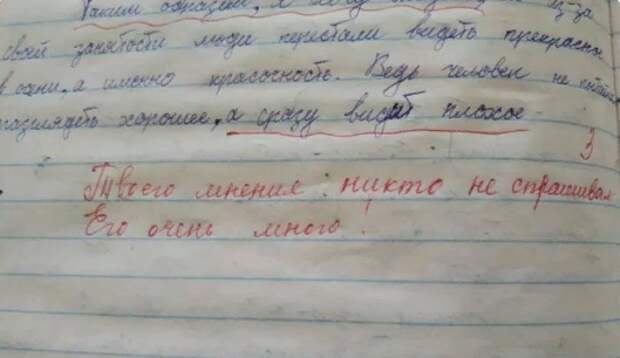 Таким образом, я
из-за
своей занятости люди перестали видеть прекрасны
а именно красочность. Ведь человек не
разглядеть хорошее, а сразу видит плохое.
3
Твоего мнения никто не спрашивал
Его очень много!